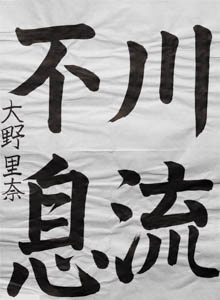 川流
不息
大野里奈